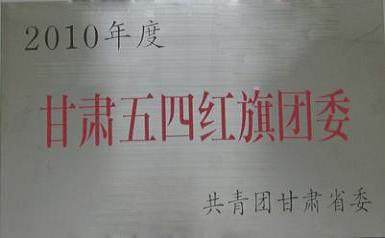 2010年度
甘肃五四红旗团委
共青团甘肃省委